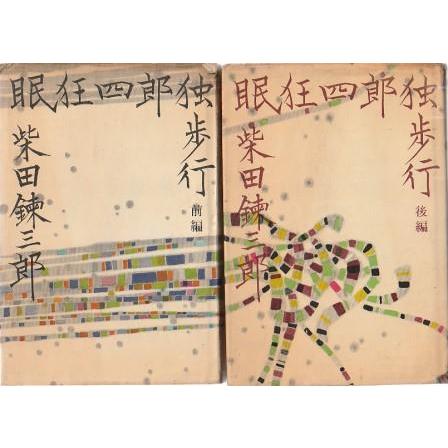 眠狂四郎独
歩行
前編
柴田錬三郎
眠狂四郎独
歩行
後編
柴田錬三郎